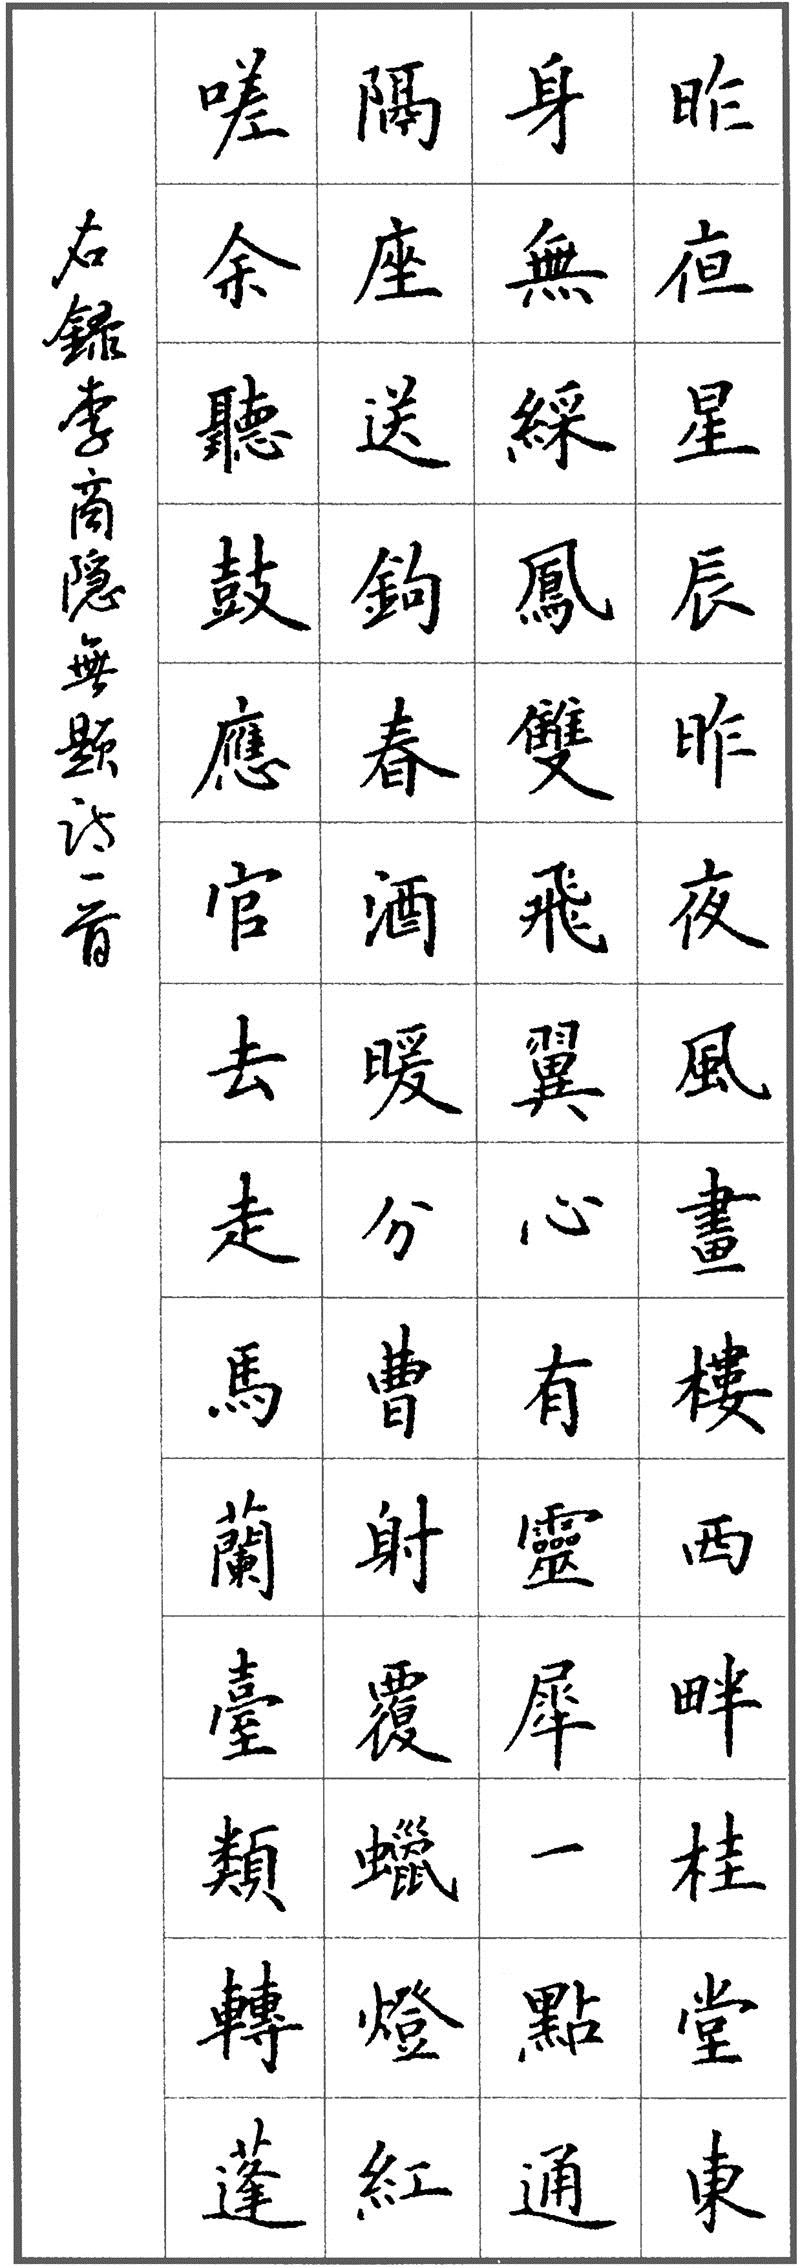 昨夜星辰昨夜風畫樓西畔桂堂東
身無綵鳳雙飛翼心有靈犀一點通
隔座送鉤春酒暖分曹射覆蠟燈紅
嗟余聽鼓應官去走馬蘭臺類轉蓬
右錄李商隱無題詩一首